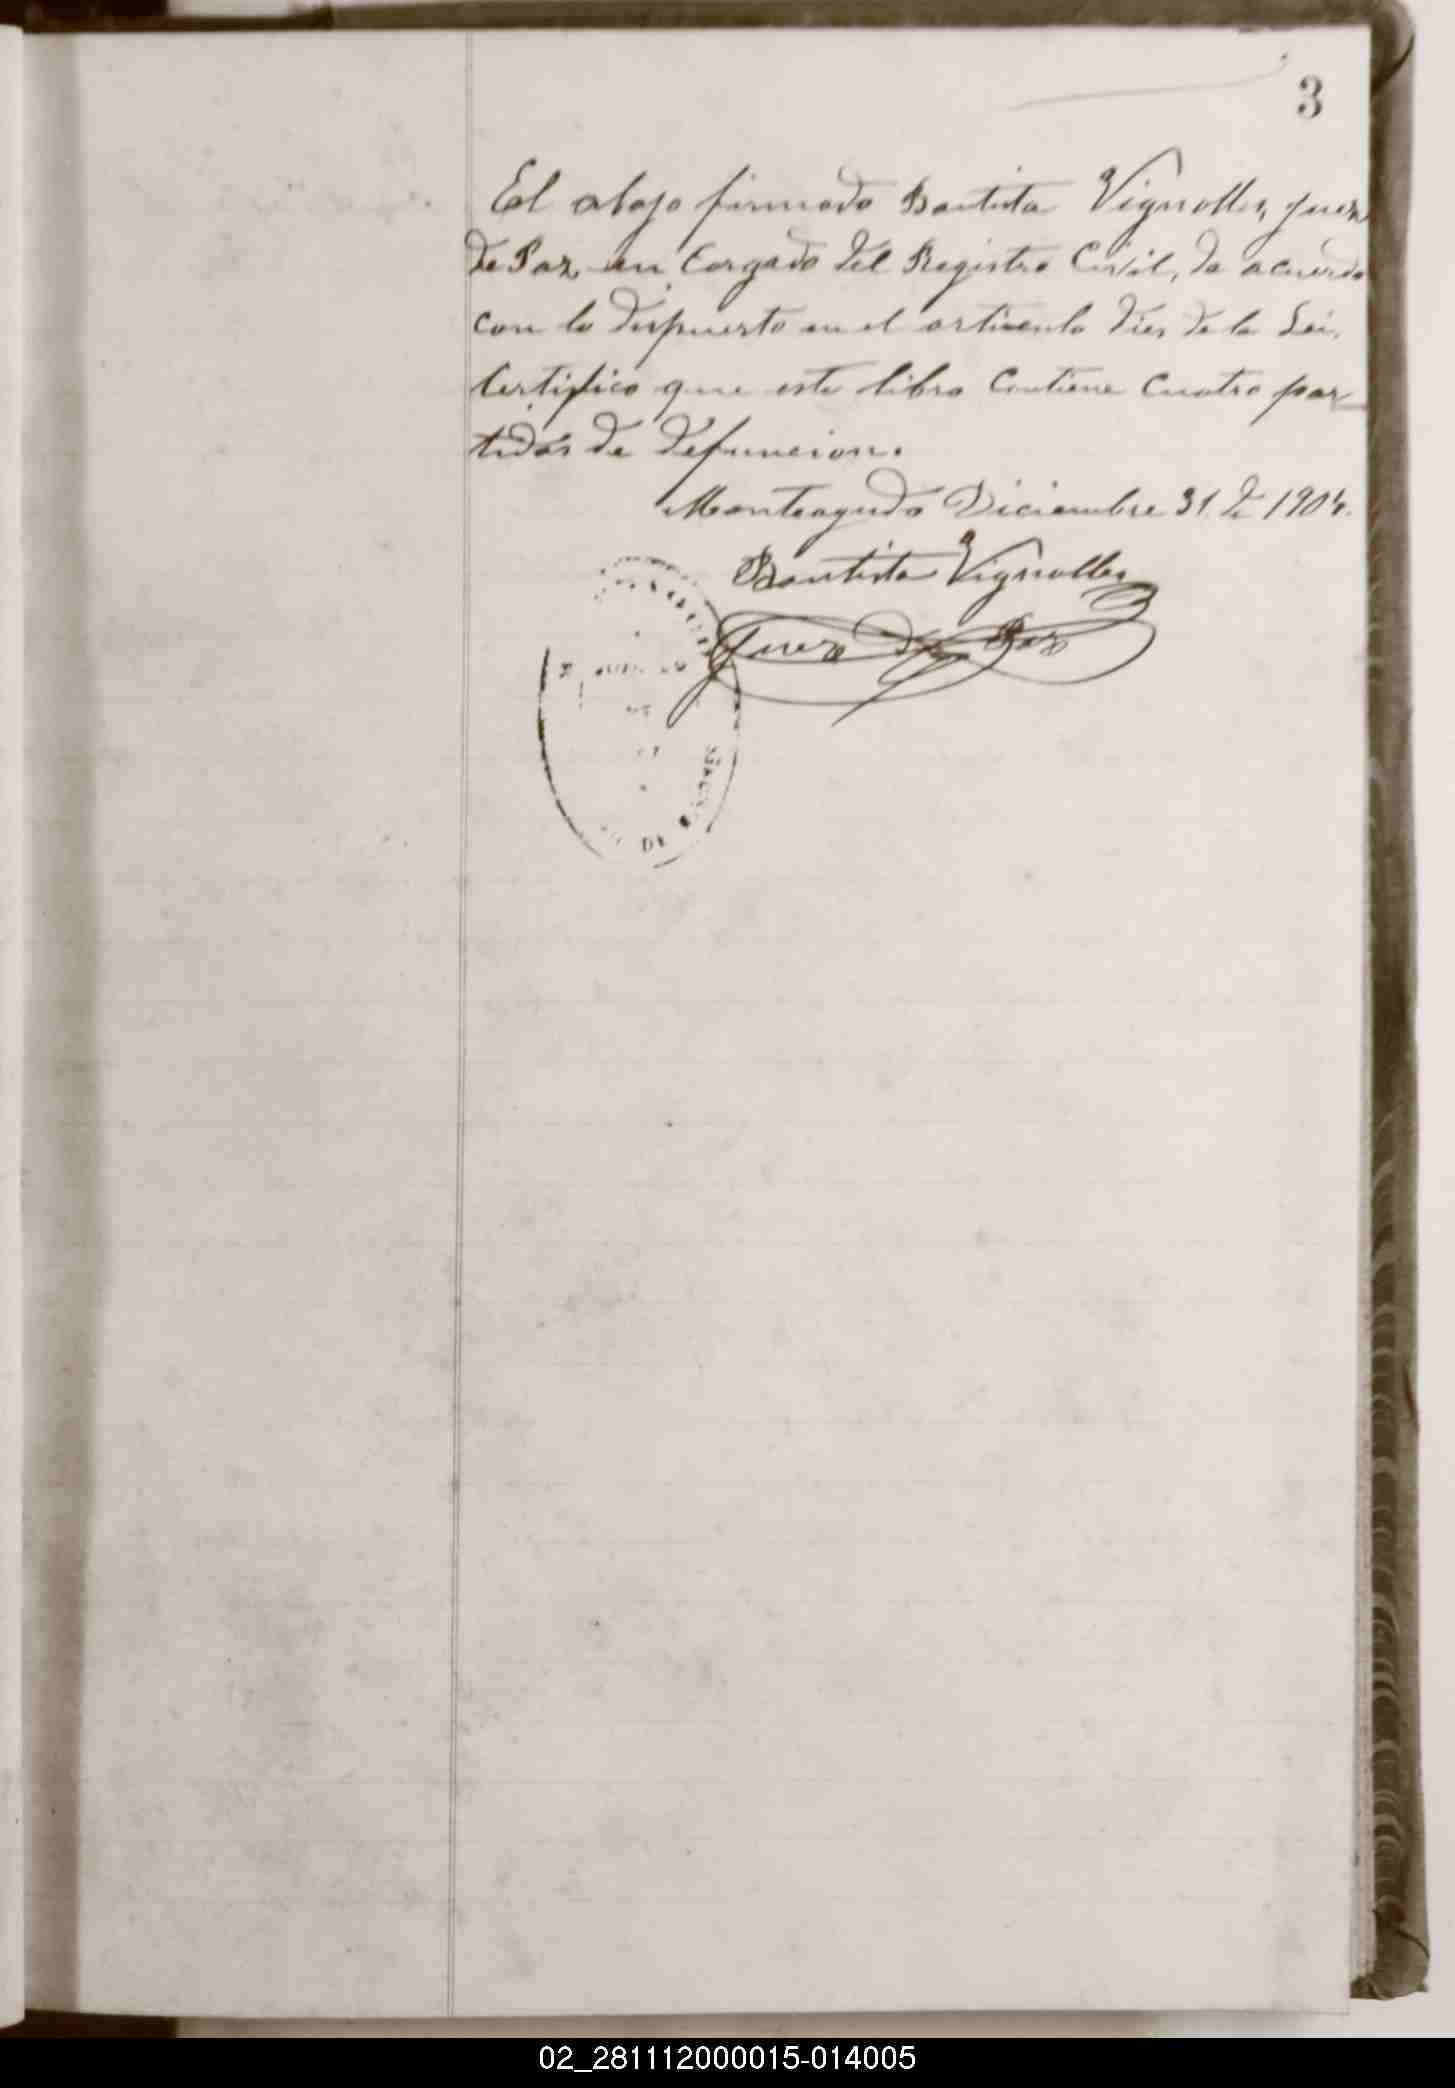 3
El abajo firmado Bautista Vignolles, Juez
de Paz en Cargado del Registro Civil, de acuerdo
con lo dispuesto en el articulo dies de la Lei,
Certifico que este libro Contiene Cuatro par-
tidas de defuncion.
Monteagudo Diciembre 31 de 1904.
Bautista Vignolles
Juez de Paz
DE
02_281112000015-014005